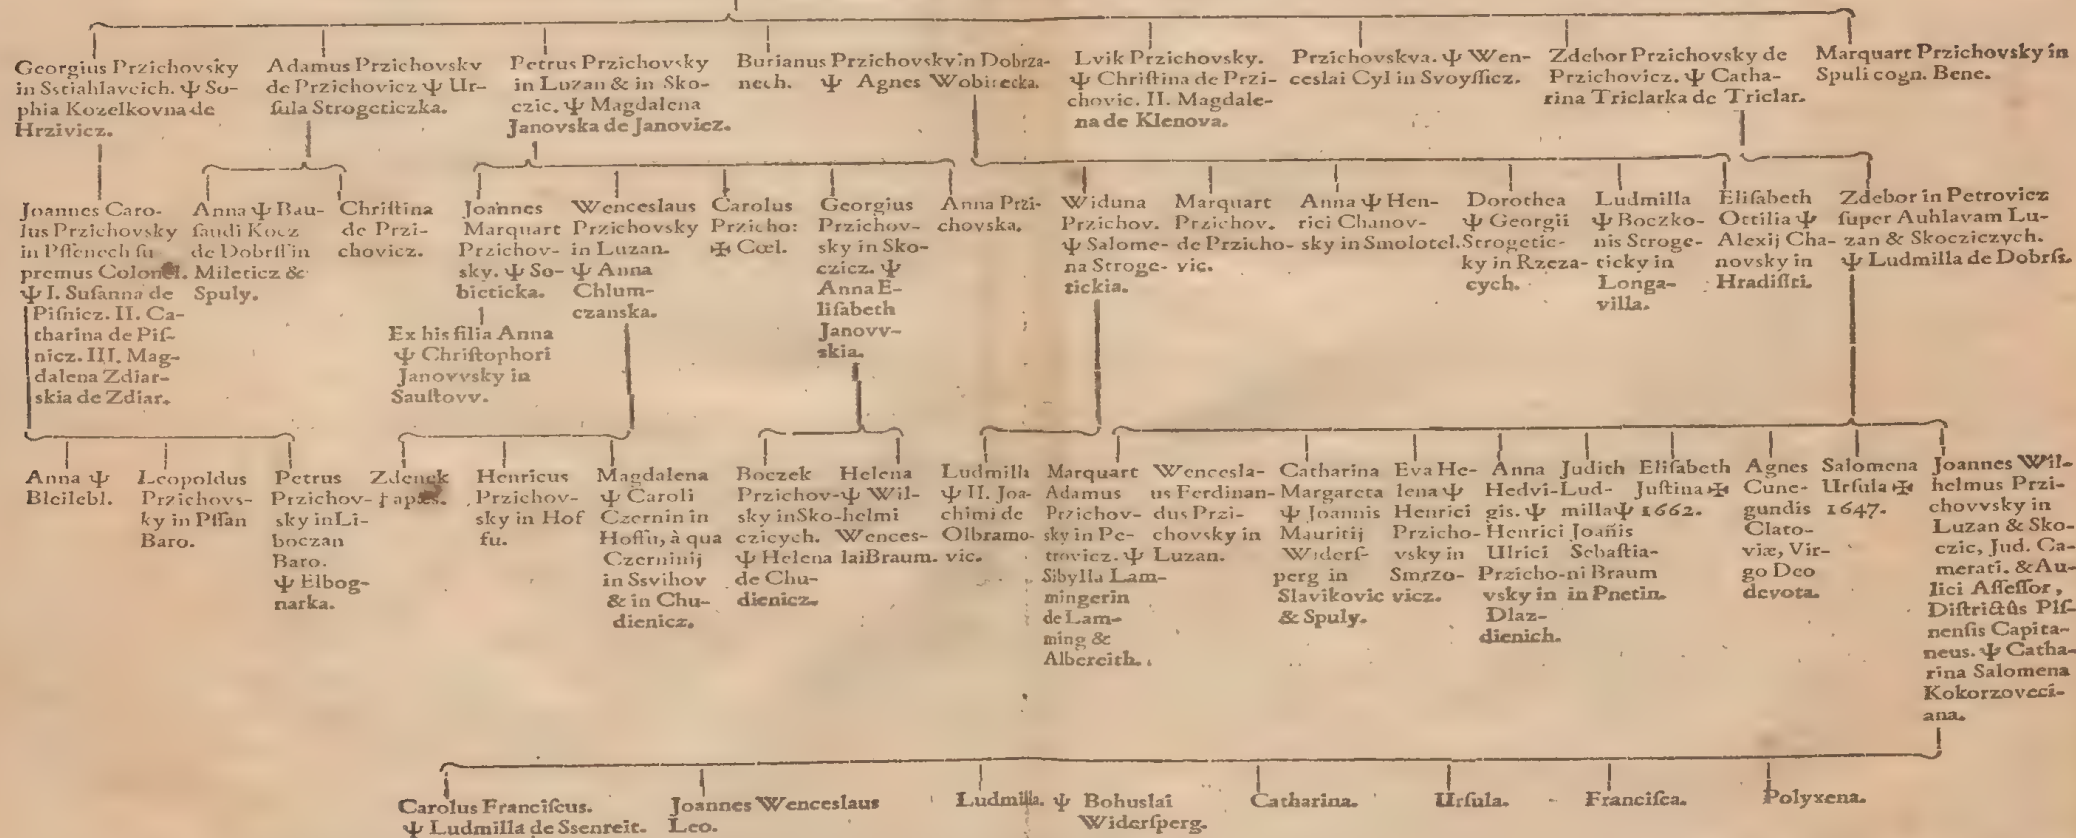 Georgius Przichovsky
in Sstiahlavcich. Ψ So-
phia Kozelkovna de
Hrzivicz.
Adamus Przichovsky
de Przichovicz Ψ Ur-
ſula Strogeticzka.
Petrus Przichovsky
in Luzan & in Sko-
czic. Ψ Magdalena
Janovska de Janovicz.
Burianus Przichovsky in Dobrza-
nech. Ψ Agnes Wobitecka.
Lvik Przichovsky.
Ψ Chriſtina de Przi-
chovic. II. Magdale-
na de Klenova.
Przichovskva. Ψ Wen-
ceslai Cyl in Svoyſſicz.
Zdebor Przichovsky de
Przichovicz. Ψ Catha-
rina Triclarka de Triclar.
Marquart Przichovsky in
Spuli cogn. Bene.
Joannes Caro-
lus Przichovsky
in Pſſenech ſu
premus Colonel.
Ψ I. Suſanna de
Piſnicz. II. Ca-
tharina de Piſ-
nicz. III. Mag-
dalena Zdiar-
skia de Zdiar.
Anna Ψ Bau-
ſaudi Kocz
de Dobrſſ in
Mileticz &
Spuly.
Chriſtina
de Przi-
chovicz.
Joannes
Marquart
Przichov-
sky. Ψ So-
bieticka.
Ex his filia Anna
Ψ Chriſtophori
Janovvsky in
Sauſtovv.
Wenceslaus
Przichovsky
in Luzan.
Ψ Anna
Chlum-
czanska.
Carolus
Przicho:
✠ Cœl.
Georgius
Przichov-
sky in Sko-
czicz. Ψ
Anna E-
liſabeth
Janovv-
skia.
Anna Przi-
chovska.
Widuna
Przichov.
Ψ Salome-
na Stroge-
tickia.
Marquart
Przichov.
de Przicho-
vic.
Anna Ψ Hen-
rici Chanov-
sky in Smolotel.
Dorothea
Ψ Georgii
Strogetic-
ky in Rzeza-
cych.
Ludmilla
Ψ Boczko-
nis Stroge-
ticky in
Longa-
villa.
Eliſabeth
Ottilia Ψ
Alexij Cha-
novsky in
Hradiſſti.
Zdebor in Petrovicz
ſuper Auhlavam Lu-
zan & Skocziczych.
Ψ Ludmilla de Dobrſs.
Anna Ψ
Bleilebl.
Leopoldus
Przichovs-
ky in Pſſan
Baro.
Petrus
Przichov-
sky in Li-
boczan
Baro.
Ψ Elbog-
narka.
Zdenek
† apæs.
Henricus
Przichov-
sky in Hof
fu.
Magdalena
Ψ Caroli
Czernin in
Hoffu, à qua
Czerninij
in Ssvihov
& in Chu-
dienicz.
Boczek
Przichov-
sky in Sko-
czicych.
Ψ Helena
de Chu-
dienicz.
Helena
Ψ Wil-
helmi
Wences-
lai Braum.
Ludmilla
Ψ II. Joa-
chimi de
Olbramo-
vic.
Marquart
Adamus
Przichov-
sky in Pe-
trovicz. Ψ
Sibylla Lam-
mingerin
de Lam-
ming &
Albereith.
Wencesla-
us Ferdinan-
dus Przi-
chovsky in
Luzan.
Catharina
Margareta
Ψ Joannis
Mauritij
Widerſ-
perg in
Slavikovic
& Spuly.
Eva He-
lena Ψ
Henrici
Przicho-
vsky in
Smrzo-
vicz.
Anna
Hedvi-
gis. Ψ
Henrici
Ulrici
Przicho-
vsky in
Dlaz-
dienich.
Judith
Lud-
milla Ψ
Joañis
Sebaſtia-
ni Braum
in Pnetin.
Eliſabeth
Juſtina ✠
1662.
Agnes
Cune-
gundis
Clato-
viæ, Vir-
go Deo
devota.
Salomena
Urſula ✠
1647.
Joannes Wil-
helmus Przi-
chovvsky in
Luzan & Sko-
czic, Jud. Ca-
merati. & Au-
lici Aſſeſſor,
Diſtrictûs Plſ-
nenſis Capita-
neus. Ψ Catha-
rina Salomena
Kokorzoveci-
ana.
Carolus Franciſcus.
Ψ Ludmilla de Ssenreit.
Joannes Wenceslaus
Leo.
Ludmilla. Ψ Bohuslai
Widerſperg.
Catharina.
Urſula.
Franciſca.
Polyxena.